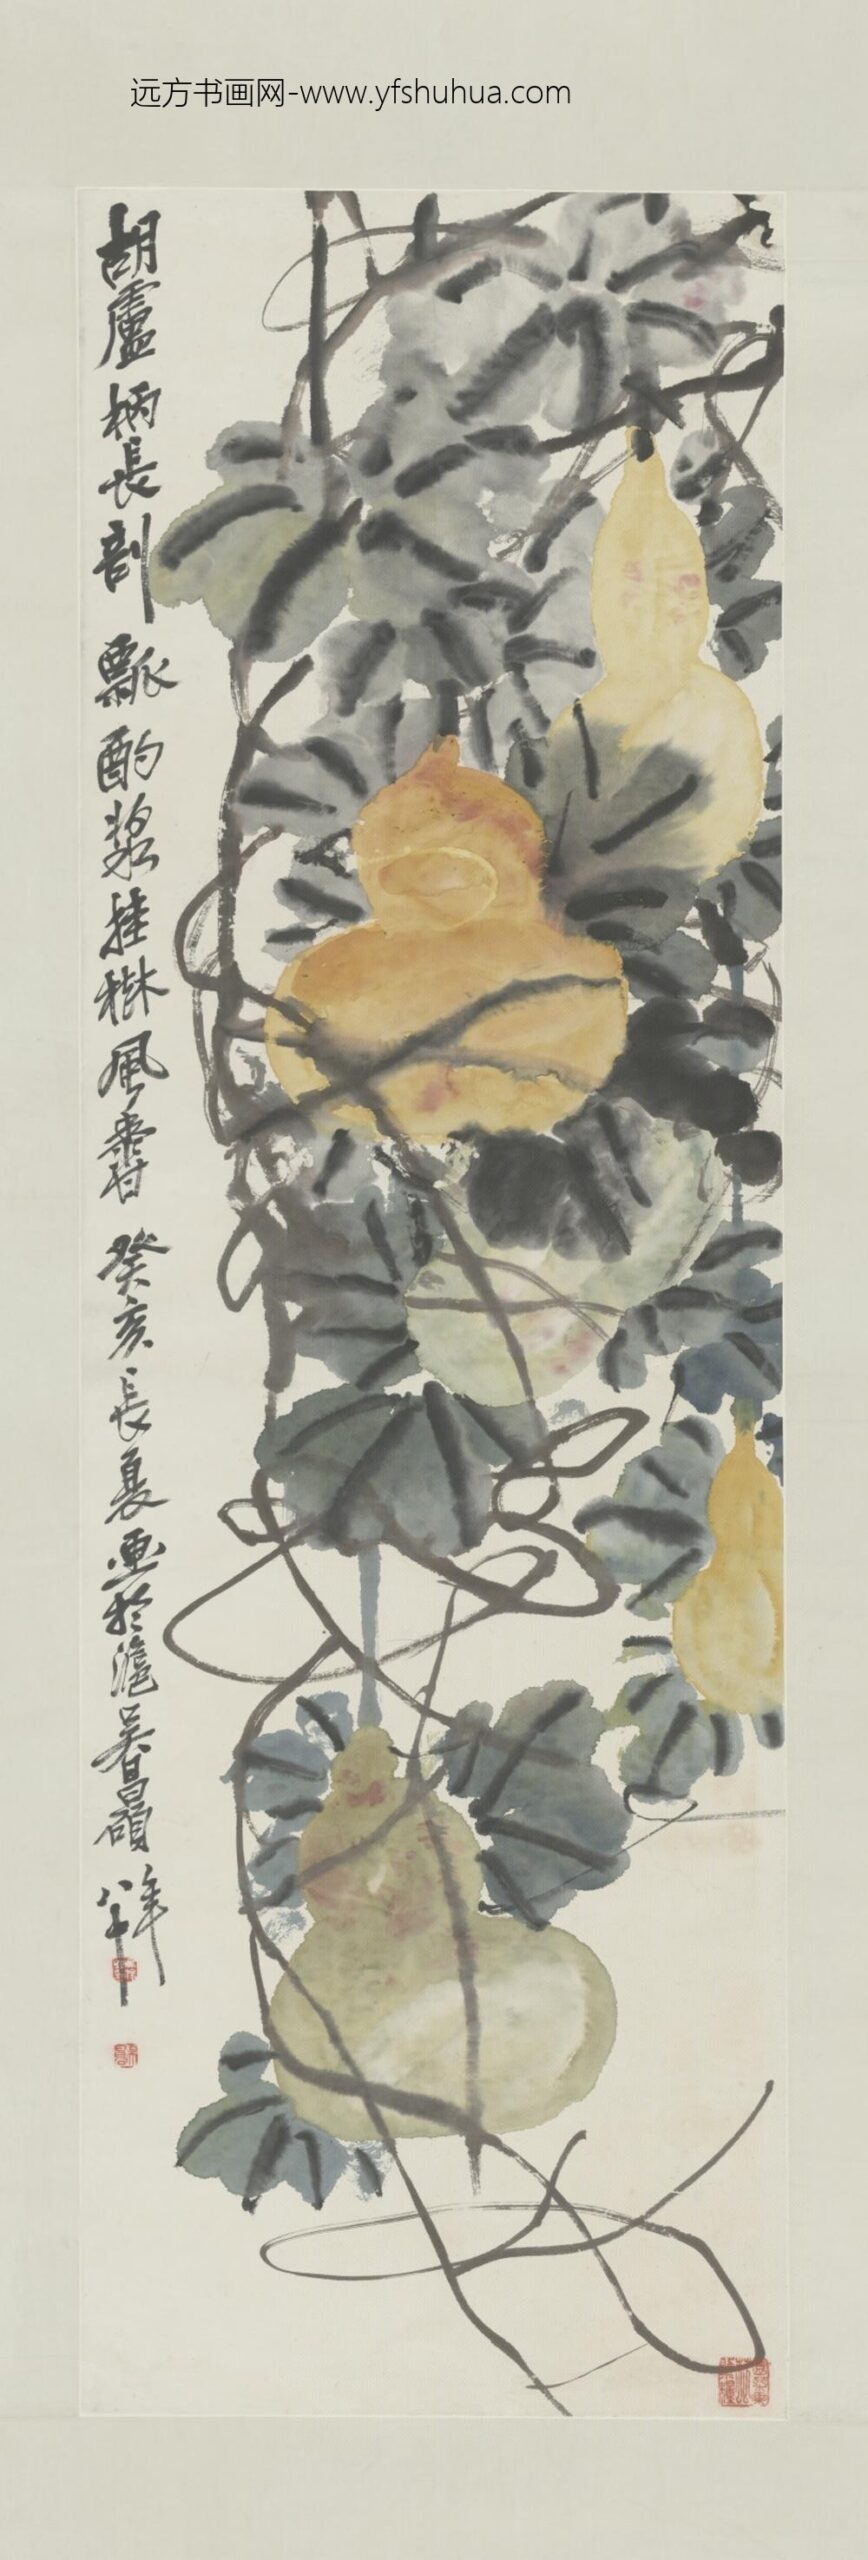 远方书画网-www.yfshuhua.com
胡盧柄長剖瓢酌漿挂樹風香癸亥長夏畫於滬吳昌碩年八十